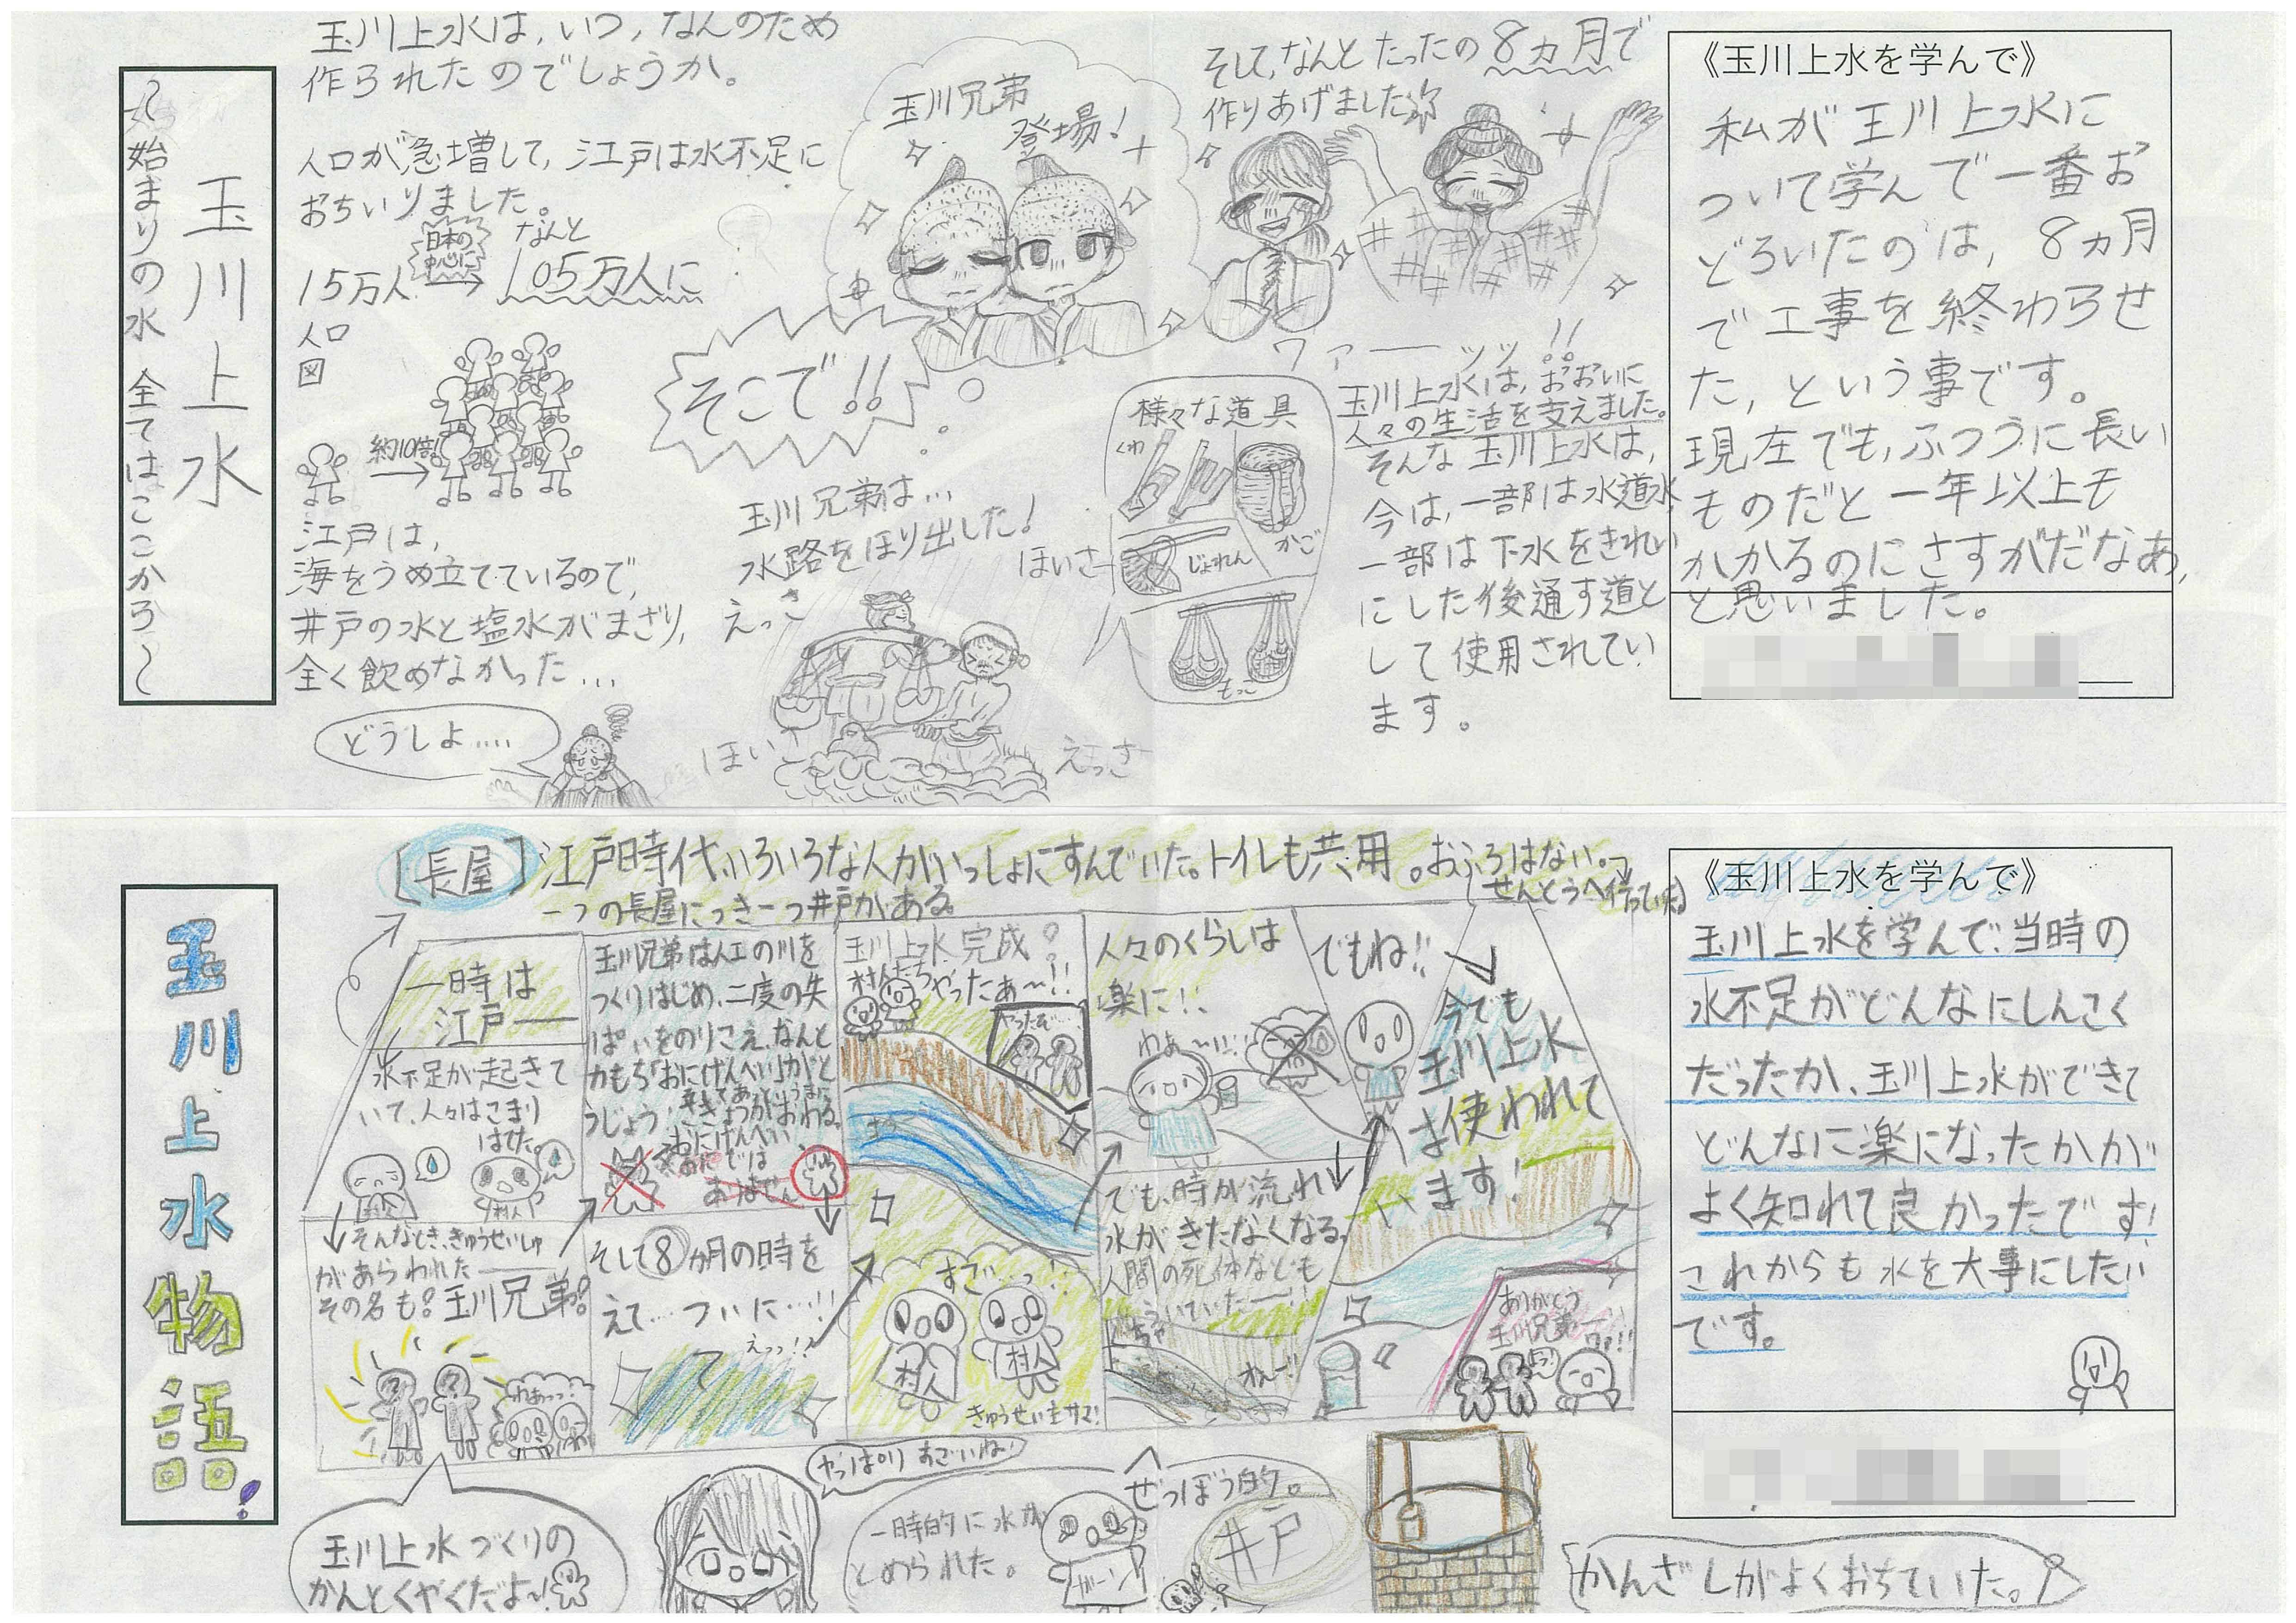 玉川上水
〜始まりの水 全てはここから〜
玉川上水は、いつ、なんのため
作られたのでしょうか。
人口が急増して、江戸は水不足に
おちいりました。
日本の
中心に
なんと
15万人→105万人に
人口
図
約10倍!
江戸は、
海をうめ立てているので、
井戸の水と塩水がまざり、
全く飲めなかった…
どうしよ….
玉川兄弟
登場!
そこで!!
玉川兄弟は…
水路をほり出した!
えっさ
ほいさ
ほいさ
えっさ
そして、なんとたったの8ヵ月で
作りあげました
ワァーーッッ!!
様々な道具
くわ
かご
じょれん
もっこ
玉川上水は、おおいに
人々の生活を支えました。
そんな玉川上水は、
今は、一部は水道水、
一部は下水をきれい
にした後通す道と
して使用されてい
ます。
《玉川上水を学んで》
私が玉川上水に
ついて学んで一番お
どろいたのは、8ヵ月
で工事を終わらせ
た、という事です。
現在でも、ふつうに長い
ものだと一年以上も
かかるのにさすがだなあ、
と思いました。
玉川上水物語!
[長屋]江戸時代、いろいろな人がいっしょにすんでいた。トイレも共用。おふろはない。
せんとうへ行っていた
一つの長屋につき一つ井戸がある。
一時は
江戸――
水不足が起きて
いて、人々はこまり
はてた。
村人
そんなとき、きゅうせいしゅ
があらわれた――
その名も!玉川兄弟!
わあっっ!
玉川兄弟は人工の川を
つくりはじめ、二度の失
ぱいをのりこえ、なんと
力もち「おにげんべい」がと
うじょう!
おにげんべい
おにでは
ありません
そして8ヵ月の時を
えて…ついに…!!
えっっ!?
玉川上水完成!
村人たち
やったあ〜!!
やったぞ
すご…っ!!
村人
村人
きゅうせい主サマ!
人々のくらしは
楽に!!
わあ〜い!!
でも、時が流れ
水がきたなくなる。
人間の死体なども
ういていた――!!
でもね!!
今でも
玉川上水
は使われて
います!
ありがとう
玉川兄弟
《玉川上水を学んで》
玉川上水を学んで、当時の
水不足がどんなにしんこく
だったか、玉川上水ができて
どんなに楽になったかが
よく知れて良かったです!
これからも水を大事にしたい
です。
玉川上水づくりの
かんとくやくだよ〜!
やっぱりすごいね!
一時的に水が
とめられた。
ぜつぼう的。
ガーン
井戸
かんざしがよくおちていた。